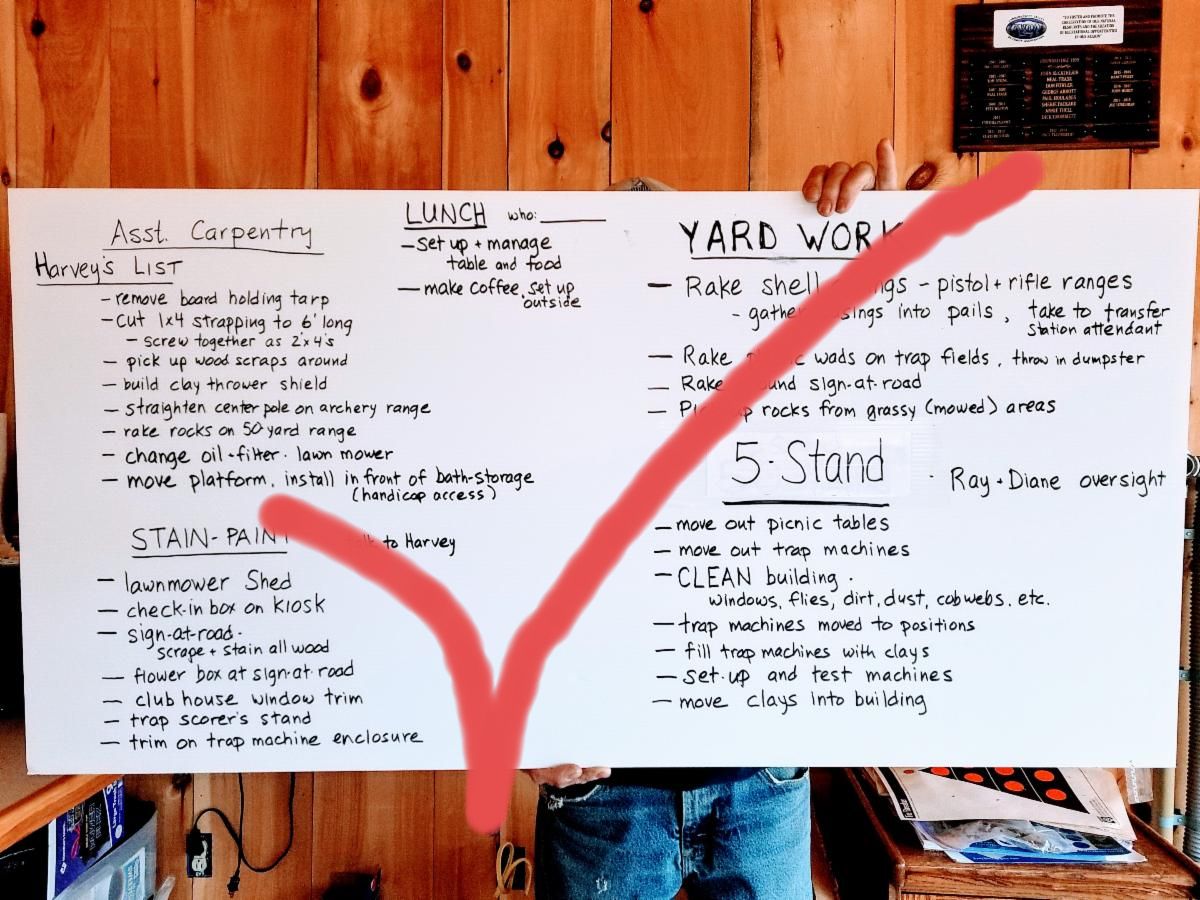 Asst. Carpentry
Harvey's LIST
- remove board holding tarp
- cut 1x4 strapping to 6' long
- screw together as 2x4's
- pick up wood scraps around
- build clay thrower shield
- straighten center pole on archery range
- rake rocks on 50-yard range
- change oil + filter - lawn mower
- move platform, install in front of bath-storage
(handicap access)
STAIN-PAINT
to Harvey
- lawnmower Shed
- check-in box on Kiosk
- sign-at-road -
scrape + stain all wood
- flower box at sign-at-road
- club house window trim
- trap scorer's stand
- trim on trap machine enclosure
LUNCH who:
- set up + manage
table and food
- make coffee, set up
outside
YARD WORK
- Rake shell - pistol + rifle ranges
- gather into pails, take to transfer
station attendant
- Rake wads on trap fields, throw in dumpster
- Rake sign-at-road
- rocks from grassy (mowed) areas
5-Stand - Ray + Diane oversight
- move out picnic tables
- move out trap machines
- CLEAN building -
windows, flies, dirt, dust, cobwebs, etc.
- trap machines moved to positions
- fill trap machines with clays
- set-up and test machines
- move clays into building